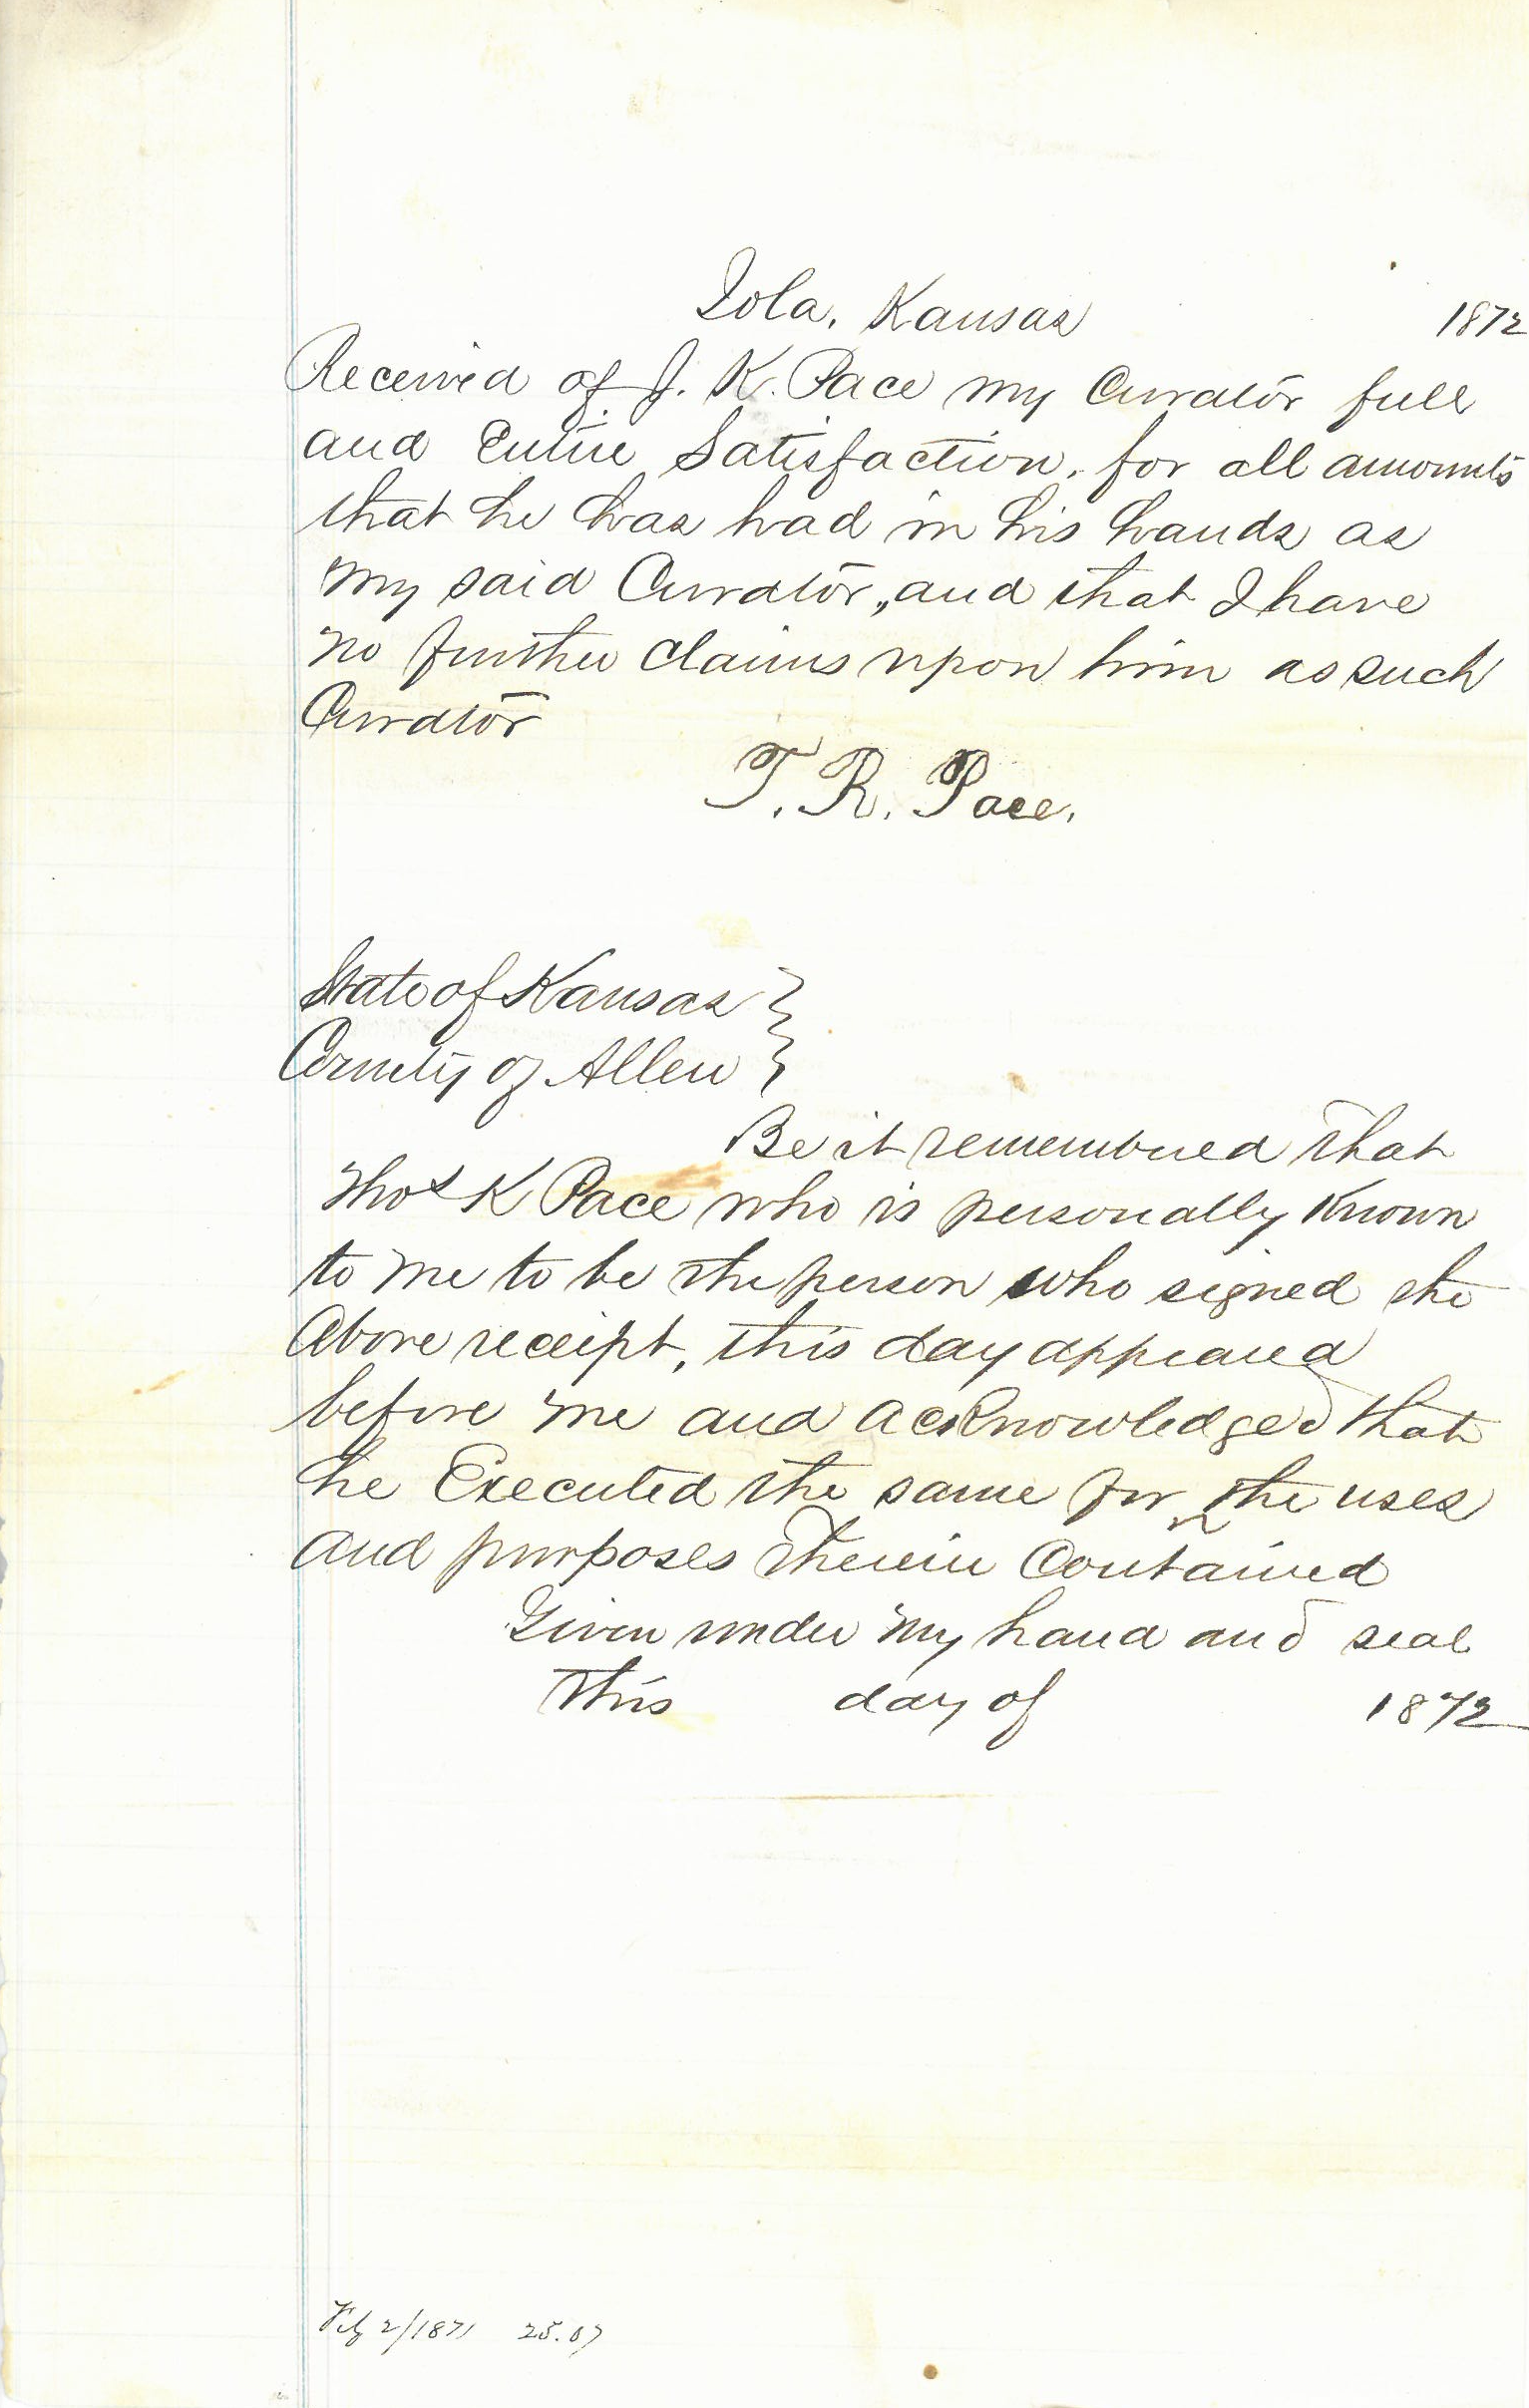 Iola, Kansas 1872
Received of J. K. Pace my Curator full
and Entire Satisfaction. for all amounts
that he has had in his hands as
my said Curator, and that I have
no further claims upon him as such
Curator
T. R. Pace.
State of Kansas }
County of Allen }
Be it remembered that
Thos K Pace who is personally Known
to me to be the person who signed the
Above receipt, this day appeared
before me and acknowledged that
he Executed the same for the uses
and purposes therein Contained
Given under my hand and seal
This day of 1872
Feby 2/1871 25.07